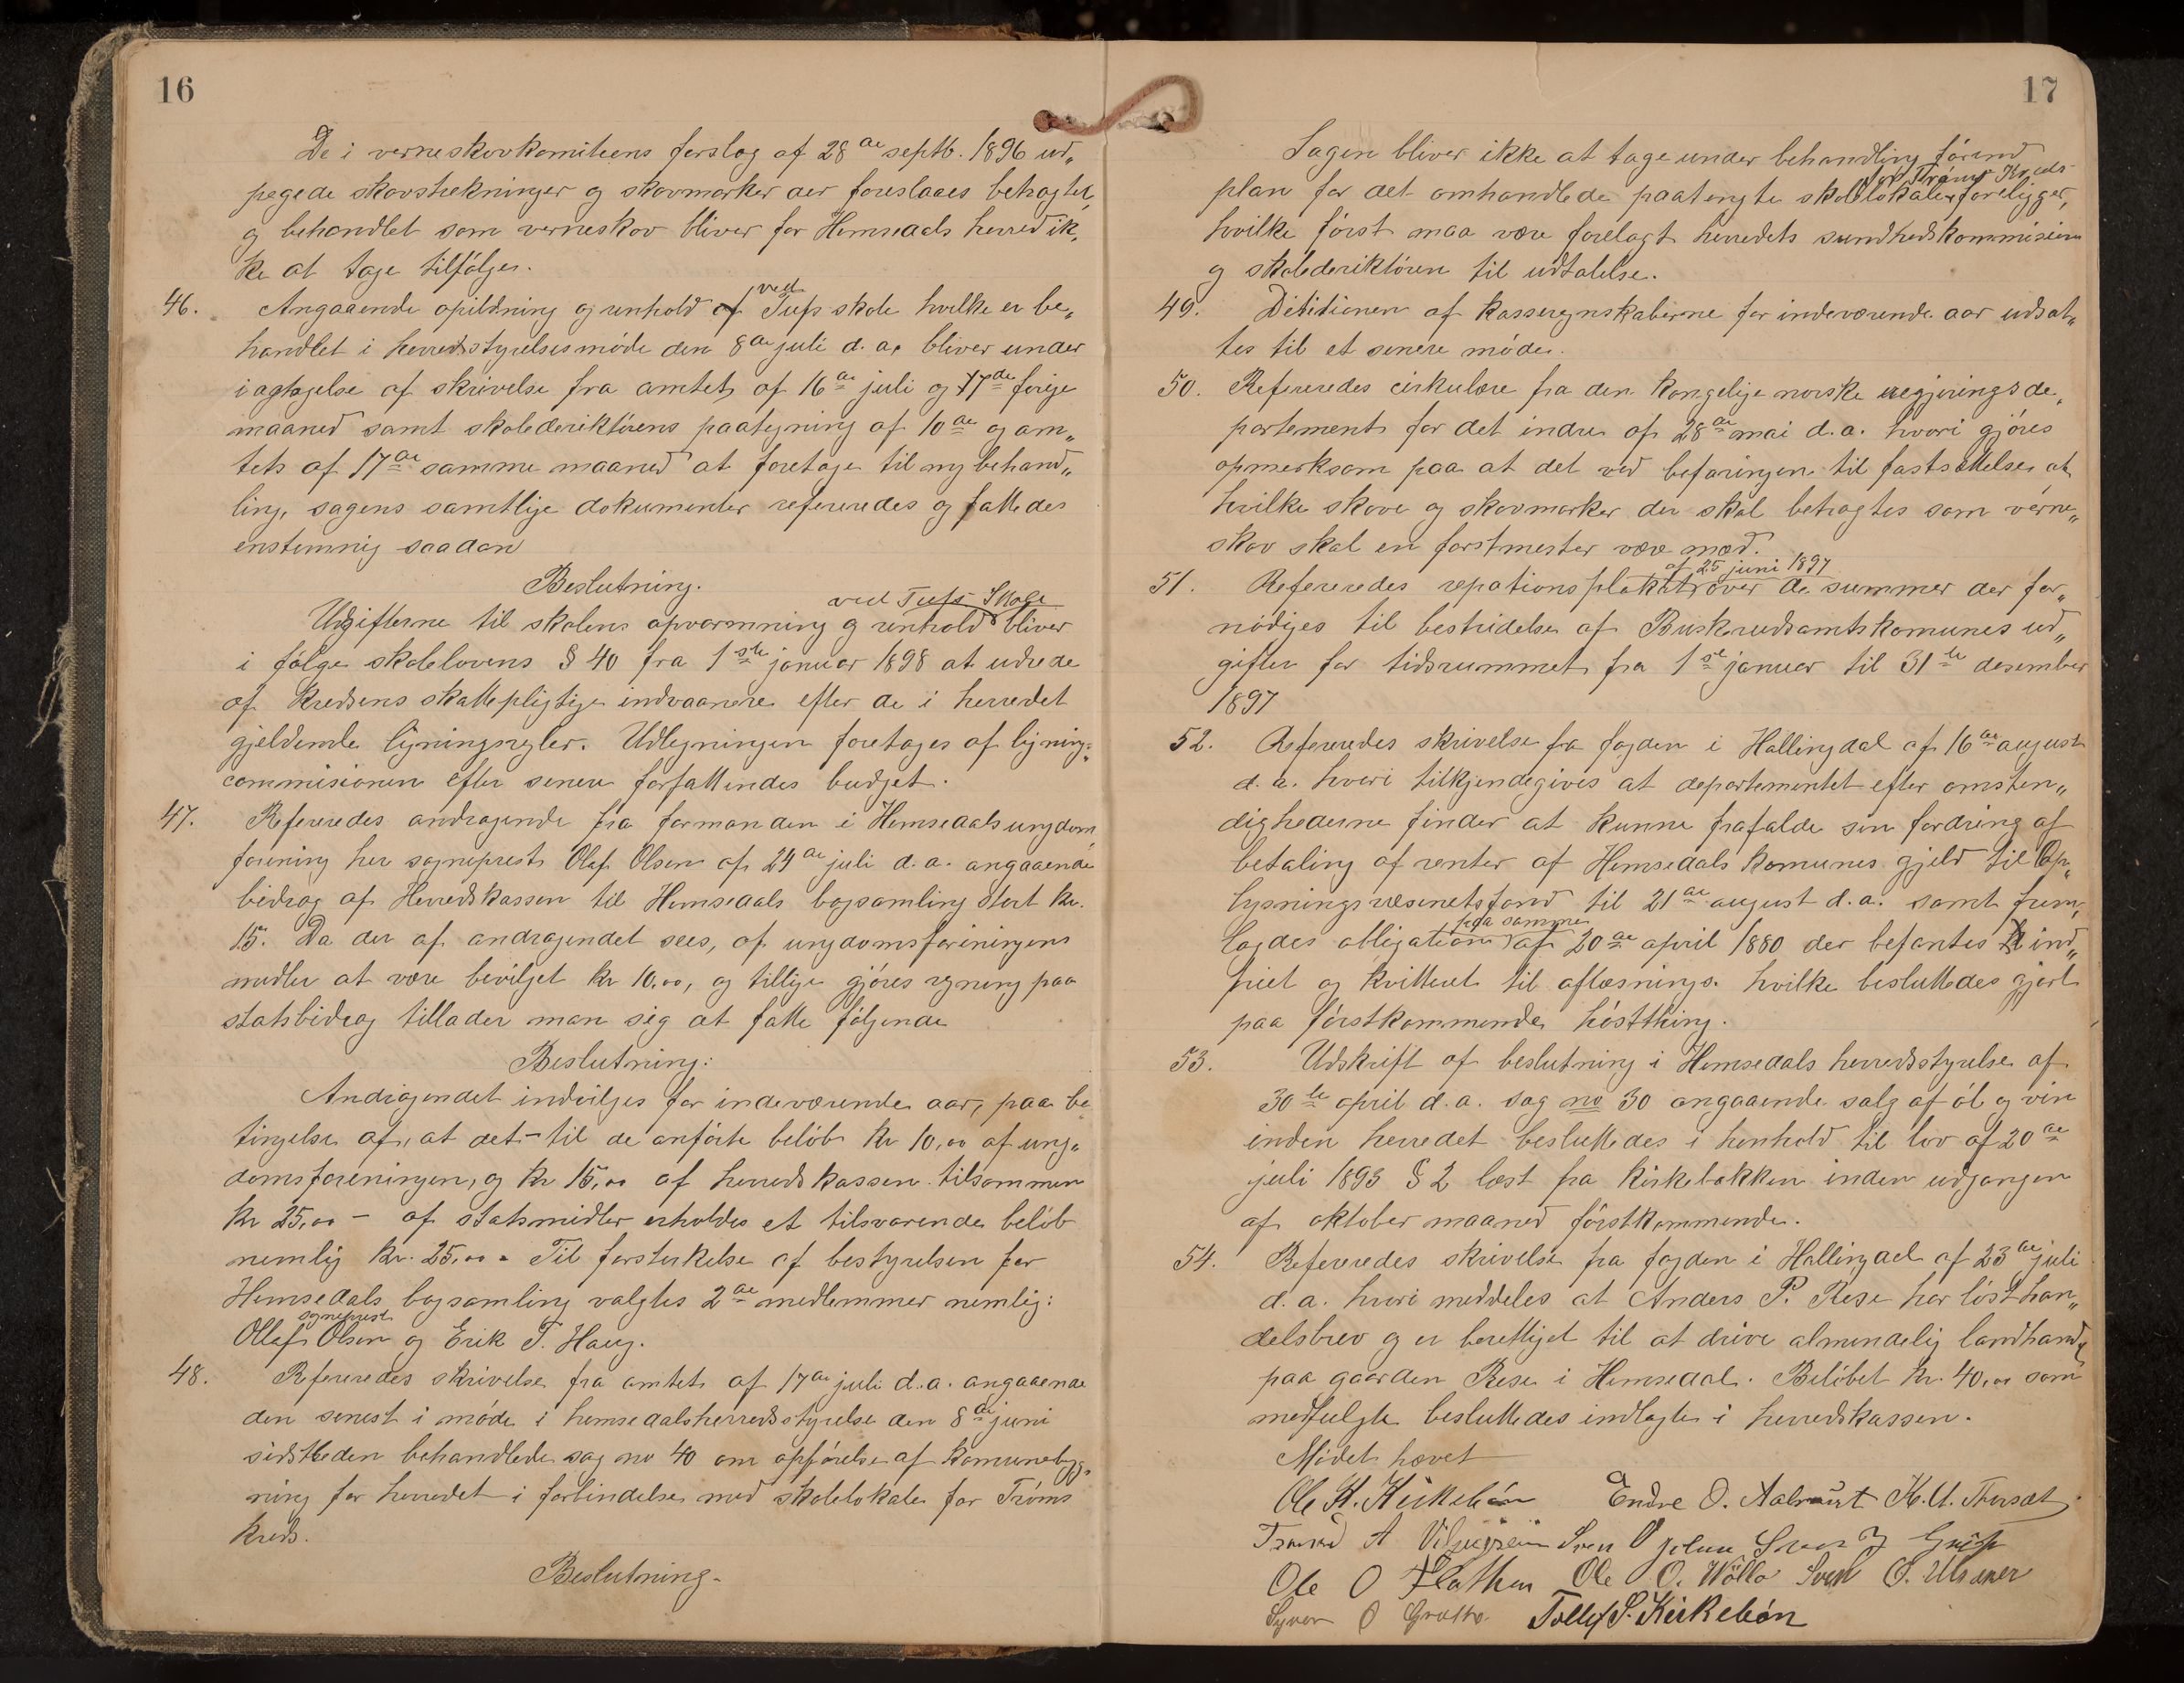 16
De i verneskovkomiteens forslag af 28de septb. 1896 ud„
pegede skovstrekninger og skovmarker der foreslaaes betragtet
og behandlet som verneskov bliver for Hemsedals herred ik„
ke at tage tilfølge.
46. Angaaende opildning og renhold af ved Tufs skole hvilke er be„
handlet i herredsstyrelsesmøde den 8de juli d. a. bliver under
iagtagelse af skrivelse fra amtet af 16de juli og 17de forige
maaned samt skoledirektørens paategning af 10de og am„
tets af 17de samme maaned at foretage til ny behand„
ling, sagens samtlige dokumenter refereredes og fattedes
enstemnig saadan
Beslutning.
Udgifterne til skolens opvarmning og renhold ved Tufs Skole bliver
i følge skolelovens § 40 fra 1ste januar 1898 at udrede
af kredsens skattepligtige indvaanere efter de i herredet
gjeldende ligningsregler. Udlegningen foretages af ligning„
commisionen efter senere forfattendes budget.
47. Refereredes andragende fra formanden i Hemsedals ungdom„
forening her sogneprest Olaf Olsen af 24de juli d. a. angaaende
bidrag af Herredskassen til Hemsedals bogsamling stort kr.
15. Da der af andragendet sees, af ungdomsforeningens
midler at være bevilget kr 10,00, og tillige gjøres regning paa
statsbidrag tillader man sig at fatte følgende
Beslutning:
Andragendet indvilges for indeværende aar, paa be
tingelse af, at det - til de anførte beløb kr 10,00 af ung„
domsforeningen, og kr 15,00 af herredskassen tilsammen
kr 25,00 - af statsmidler erholdes et tilsvarende beløb
nemlig kr. 25,00. Til forsterkelse af bestyrelsen for
Hemsedals bogsamling valgtes 2de medlemmer nemlig:
sogneprest
Ollaf Olsen og Erik T. Haug.
48. Refereredes skrivelse fra amtet af 17de juli d. a. angaaende
den senest i møde i hemsedalsherredsstyrelse den 8de juni
sidstleden behandlede sag no 40 om opførelse af komunebyg„
ning for herredet i forbindelse med skolelokale for Trøms
kreds.
Beslutning-
17
Sagen bliver ikke at tage under behandling førend
plan for det omhandlede paatengte skolelokale for Trøms Kreds foreligger,
hvilke først maa være forelagt herredets sundhedskommision
og skolederiktøren til udtalelse.
49. Desitionen af kasseregnskaberne for indeværende aar udsat„
tes til et senere møde.
50. Refereredes cirkulære fra den kongelige norske regjeringsde„
partement for det indre af 28de mai d. a. hvori gjøres
opmerksom paa at det ved befaringen til fastsættelse af
hvilke skove og skovmarker der skal betragtes som verne„
skov skal en forstmester være med.
51. Refereredes repationsplakat af 25 juni 1897 over de summer der for„
nødiges til bestridelse af Buskerudsamtskomunes ud„
gifter for tidsrummet fra 1ste januar til 31te desember
1897
52. Refereredes skrivelse fra fogden i Hallingdal af 16de august
d. a. hvori tilkjendegives at departementet efter omsten„
dighederne finder at kunne frafalde sin fordring af
betaling af renter af Hemsedals komunes gjeld til Op„
lysningsvesenets fond til 21de august d. a. samt frem„
lagdes obligation paa samme af 20de april 1880 der befantes ind„
friet og kvitteret til aflæsning. hvilke besluttedes gjort
paa førstkommende høstthing.
53. Udskrift af beslutning i Hemsedals herredsstyrelse af
30te april d. a. sag no 30 angaaende salg af øl og vin
inden herredet besluttedes i henhold til lov af 20de
juli 1893 § 2 læst fra kirkebakken inden udgangen
af oktober maaned førstkommende.
54. Refereredes skrivelse fra fogden i Hallingdal af 23de juli
d. a. hvori meddeles at Anders P. Rese har løst han„
delsbrev og er berettiget til at drive almindelig landhandel
paa gaarden Rese i Hemsedal. Beløbet kr. 40,00 som
medfulgte besluttedes indlagte i herredskassen.
Mødet hævet
Ole K. Kirkebøn Endre O. Aalrust K. U. Thorset
Trond A Sven O Sven
Ole O Flathen Ole O. Wøllo Sven O. Ulsaker
Syver O Grøtho Tollef S. Kirkebøn